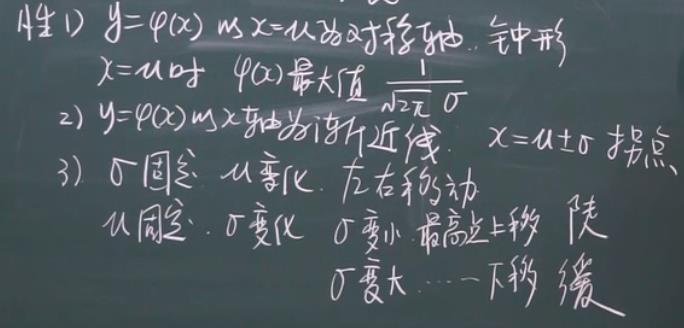 性1) y=φ(x) 以x=μ为对称轴.. 钟形
x=μ时 φ(x)最大值 1/(√2π σ)
2) y=φ(x)以x轴为渐近线. x=μ±σ 拐点、
3) σ固定 μ变化. 左右移动
μ固定. σ变化 σ变小.最高点上移 陡
σ变大……下移 缓